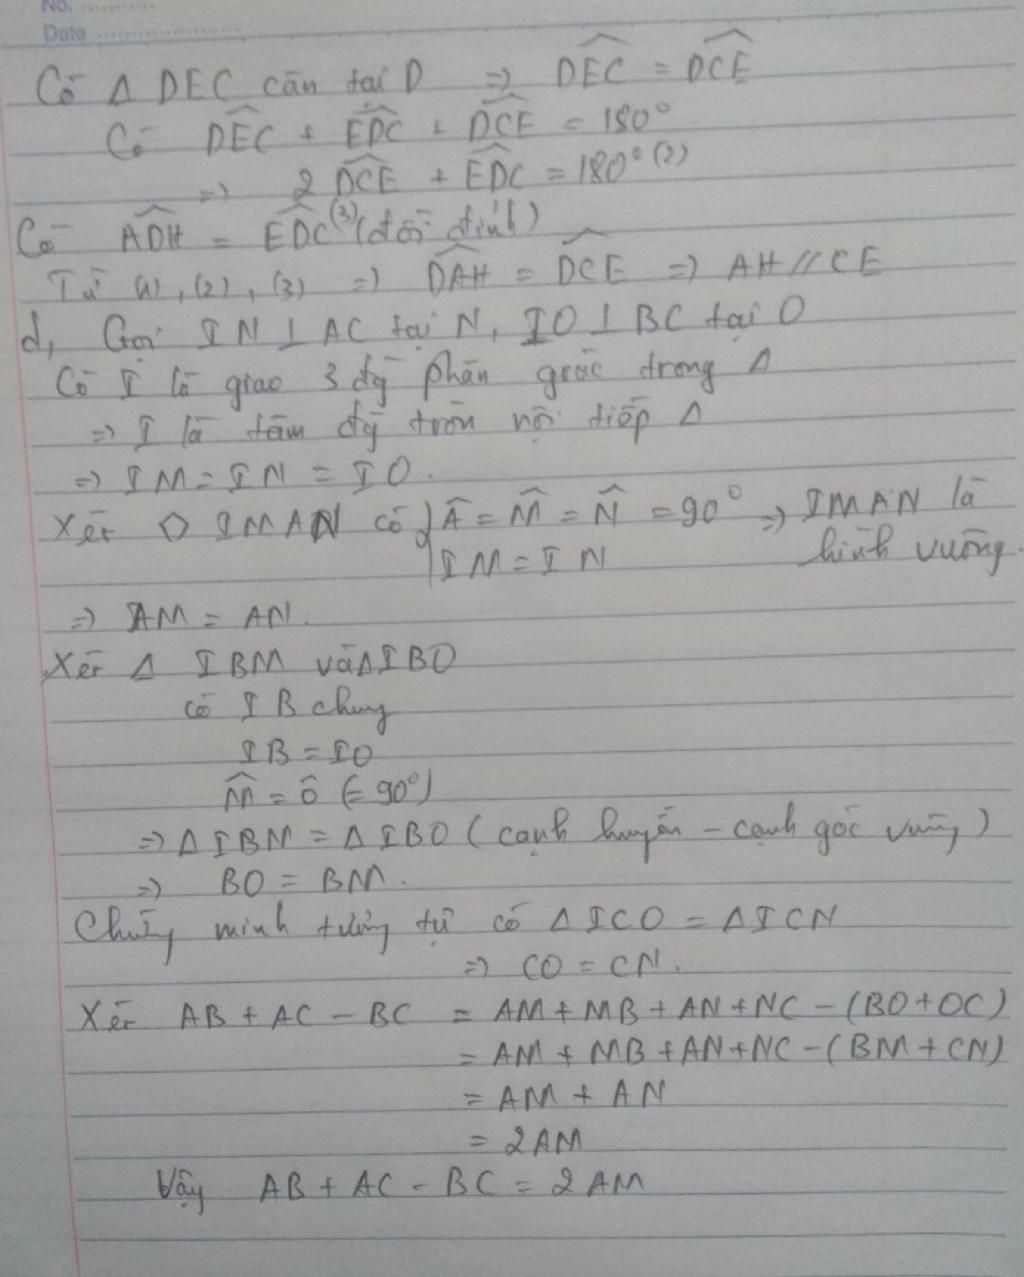 No. ............
Date ........................
Có Δ DEC cân tại D => DEC^ = DCE^
Có DEC^ + EDC^ + DCE^ = 180°
=> 2 DCE^ + EDC^ = 180° (2)
Có ADH^ = EDC^ (3) (đối đỉnh)
Từ (1), (2), (3) => DAH^ = DCE^ => AH // CE
d, Gọi IN ⊥ AC tại N, IO ⊥ BC tại O
Có I là giao 3 đg phân giác trong Δ
=> I là tâm đg tròn nội tiếp Δ
=> IM = IN = IO.
Xét ◇ IMAN có { Â = M^ = N^ = 90° => IMAN là
IM = IN hình vuông.
=> AM = AN.
Xét Δ IBM và Δ IBO
có IB chung
IB = IO
M^ = Ô (= 90°)
=> Δ IBM = Δ IBO (cạnh huyền - cạnh góc vuông)
=> BO = BM.
Chứng minh tương tự có Δ ICO = Δ ICN
=> CO = CN.
Xét AB + AC - BC = AM + MB + AN + NC - (BO + OC)
= AM + MB + AN + NC - (BM + CN)
= AM + AN
= 2AM
Vậy AB + AC - BC = 2AM